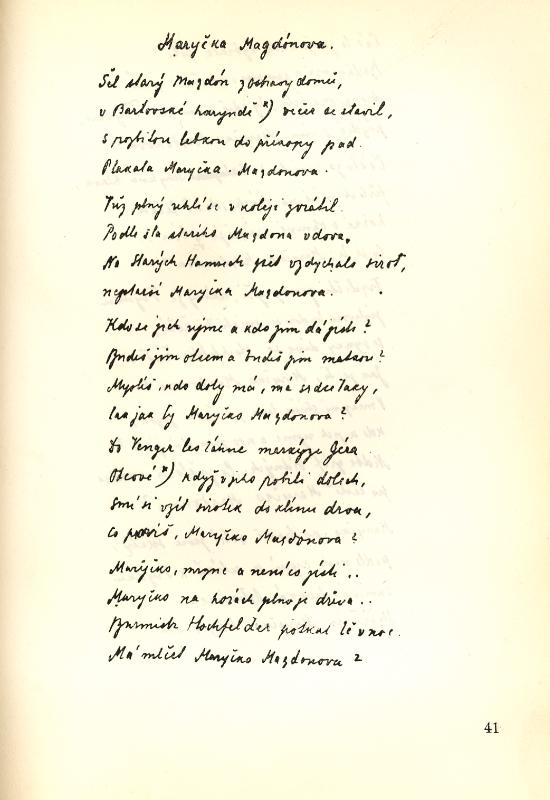 Maryčka Magdónova.
Šel starý Magdón z Ostravy domů,
v Bartovské harendě *) večer se stavil,
s rozbitou lebkou do příkopy pad.
Plakala Maryčka Magdonova.
Vůz plný uhlí se v koleji zvrátil.
Pod vozem zhasla Magdona vdova,
Na Starých Hamrech pět vzdychalo sirot,
nejstarší Maryčka Magdonova.
Kdo se jich ujme a kdo jim dá jísti?
Budeš jim otcem a budeš jim matkou?
Myslíš, kdo doly má, má srdce taky,
tak jak ty Maryčko Magdonova?
les táhne markýze Géra
Otcové *) když v jeho robili dolech,
smí si vzít sirotek do klínu drva,
co pravíš, Maryčko Magdónova?
Maryčko, mrzne a není co jísti..
Maryčko na horách plno je dřeva..
Burmistr Hochfelder potkal tě v noc.
Má mlčet Maryčko Magdonova?
41